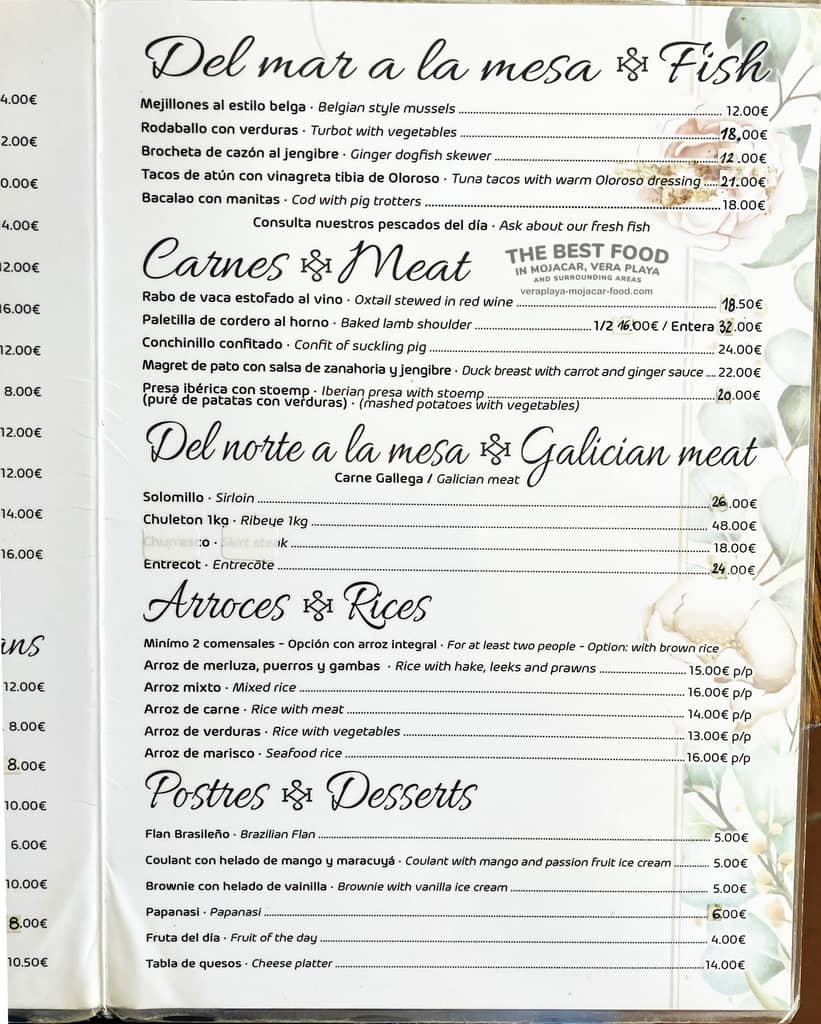 4.00€
2.00€
0.00€
4.00€
12.00€
16.00€
12.00€
8.00€
12.00€
12.00€
14.00€
16.00€
ans
12.00€
8.00€
8.00€
10.00€
6.00€
10.00€
8.00€
10.50€
Del mar a la mesa Fish
Mejillones al estilo belga · Belgian style mussels 12.00€
Rodaballo con verduras · Turbot with vegetables 18.00€
Brocheta de cazón al jengibre · Ginger dogfish skewer 12.00€
Tacos de atún con vinagreta tibia de Oloroso · Tuna tacos with warm Oloroso dressing 21.00€
Bacalao con manitas · Cod with pig trotters 18.00€
Consulta nuestros pescados del día · Ask about our fresh fish
Carnes Meat
THE BEST FOOD
IN MOJACAR, VERA PLAYA
AND SURROUNDING AREAS
veraplaya-mojacar-food.com
Rabo de vaca estofado al vino · Oxtail stewed in red wine 18.50€
Paletilla de cordero al horno · Baked lamb shoulder 1/2 16.00€ / Entera 32.00€
Conchinillo confitado · Confit of suckling pig 24.00€
Magret de pato con salsa de zanahoria y jengibre · Duck breast with carrot and ginger sauce 22.00€
Presa ibérica con stoemp · Iberian presa with stoemp 20.00€
(puré de patatas con verduras) · (mashed potatoes with vegetables)
Del norte a la mesa Galician meat
Carne Gallega / Galician meat
Solomillo · Sirloin 26.00€
Chuleton 1kg · Ribeye 1kg 48.00€
Churrasco · Skirt steak 18.00€
Entrecot · Entrecôte 24.00€
Arroces Rices
Minímo 2 comensales - Opción con arroz integral · For at least two people - Option: with brown rice
Arroz de merluza, puerros y gambas · Rice with hake, leeks and prawns 15.00€ p/p
Arroz mixto · Mixed rice 16.00€ p/p
Arroz de carne · Rice with meat 14.00€ p/p
Arroz de verduras · Rice with vegetables 13.00€ p/p
Arroz de marisco · Seafood rice 16.00€ p/p
Postres Desserts
Flan Brasileño · Brazilian Flan 5.00€
Coulant con helado de mango y maracuyá · Coulant with mango and passion fruit ice cream 5.00€
Brownie con helado de vainilla · Brownie with vanilla ice cream 5.00€
Papanasi · Papanasi 6.00€
Fruta del día · Fruit of the day 4.00€
Tabla de quesos · Cheese platter 14.00€